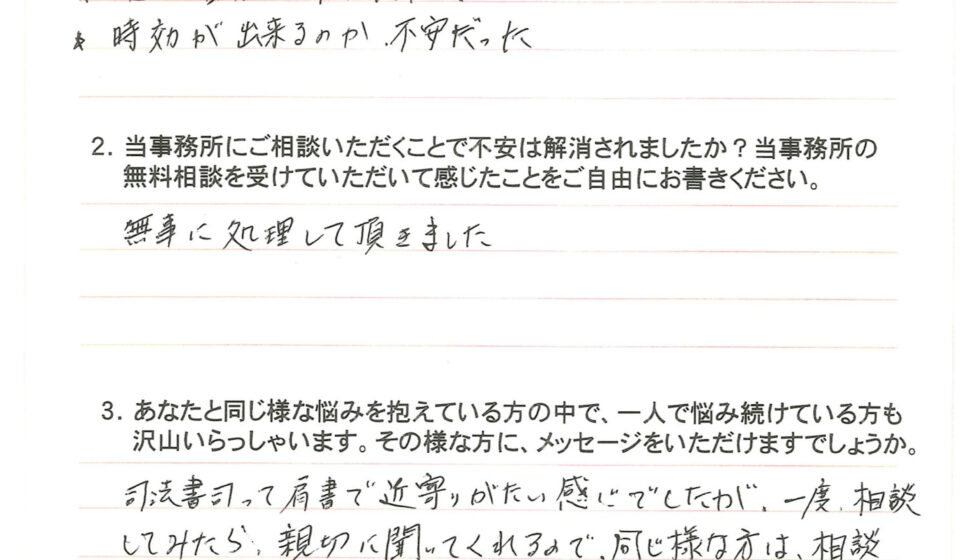 時効が出来るのか、不安だった
2. 当事務所にご相談いただくことで不安は解消されましたか？当事務所の
無料相談を受けていただいて感じたことをご自由にお書きください。
無事に処理して頂きました
3. あなたと同じ様な悩みを抱えている方の中で、一人で悩み続けている方も
沢山いらっしゃいます。その様な方に、メッセージをいただけますでしょうか。
司法書司って肩書で近寄りがたい感じでしたが、一度、相談
してみたら、親切に聞いてくれるので、同じ様な方は、相談